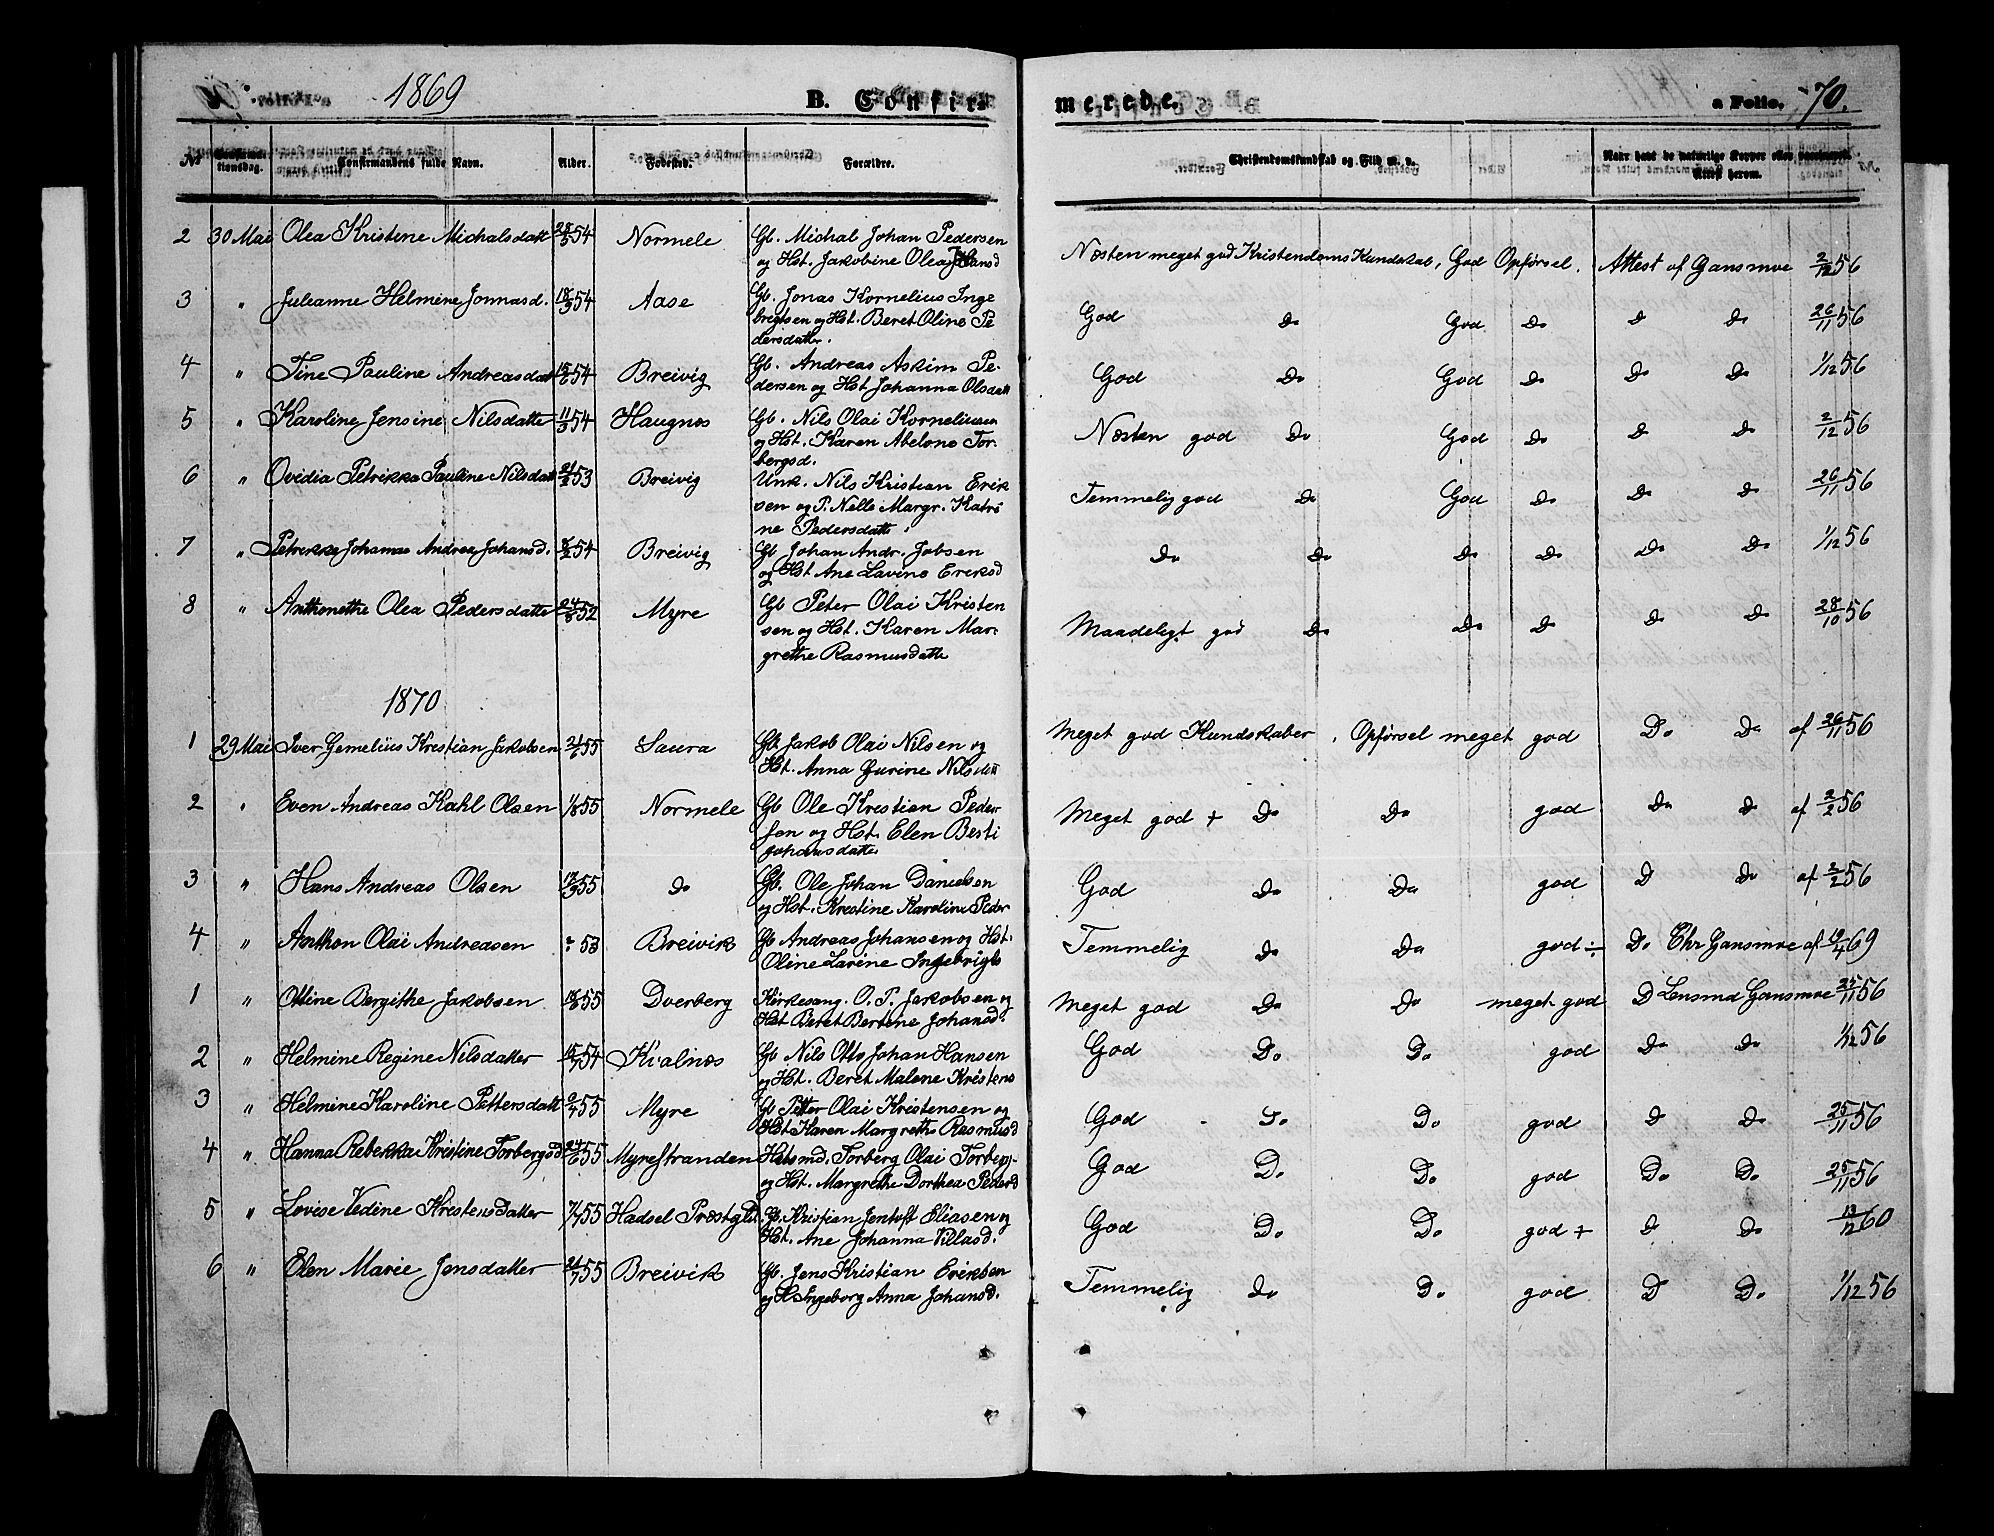 1869 B. Confirmerede. a Folio. 70.
No Confirmationsdag. Confirmandens fulde Navn. Alder. Fødested. Forældre. Christendomskundskab og Flid m. v. Naar havt de naturlige Kopper eller vaccineret. Attest herom.
2 30 Mai Olea Kristine Michalsdatt 54 Normele Gb. Michal Johan Pedersen
og Hst. Jakobine Olea Hansd Næsten meget god Kristendoms Kundskab, God Opførsel. Attest af Gansmoe 2/12 56
3 " Juleanne Helmine Jonnasd. 18/3 54 Aase Gb. Jonas Kornelius Inge
bregtsen og Hst. Beret Oline Pe God Do God Do D Do 26/11 56
dersdatter.
4 " Tine Pauline Andreasdatt 54 Breivig Gb. Andreas Askim Pe-
dersen og Hst Johanna Olsdatt God Do God Do Do Do 1/12 56
5 " Karoline Jensine Nilsdatte 11/3 54 Haugnes Gb. Nils Olai Korneliusen
og Hst. Karen Abelone Tor- Næsten god Do God Do D Do 2/12 56
bergsd.
6 " Ovidia Petrikka Pauline Nilsdatt 53 Breivig Unk. Nils Kristian Erik
sen og P. Nelle Margr. Katri Temmelig god Do God Do Do Do 26/11 56
ne Pedersdatte
7 " Petrikka Johanna Andrea Johansd. 8/2 54 Breivig Gb Johan Andr. Jobsen
og Hst Ane Lavine Eriksd Do Do Do Do Do Do 1/12 56
8 " Anthonethe Olea Pedersdatte 24/8 52 Myre Gb Peter Olai Kristen
sen og Hst. Karen Mar- Maadeligt god Do Do Do Do Do 28/10 56
grethe Rasmusdatte
1870
1 29 Mai Iver Gemelius Kristian Jakobsen 55 Saura Gb Jakob Olai Nilsen og
Hst. Anna Gurine Nilsdatt Meget god Kundskaber. Opførsel meget god Do Do af 26/11 56
2 " Even Andreas Kahl Olsen 1/8 55 Normele Gb Ole Kristian Peder
sen og Hst. Elen Besti Meget god + Do Do god Do D af 2/2 56
Johansdatte
3 " Hans Andreas Olsen 55 do Gb. Ole Johan Danielsen
og Hst. Krestine Karoline Peder God Do Do god D Do af 2/2 56
4 " Anthon Olai Andreasen 53 Breivik Gb Andreas Johansen og Hst.
Oline Lavine Ingebrigts Temmelig Do Do god ÷ Do Chr Gansmoe af 19/4 69
1 " Ottine Bergithe Jakobsen 55 Dverberg Kirkesang. O. P. Jakobsen og
Hst Beret Bertine Johansd. Meget god Do Do meget god D Lensmd Gansmoe 25/11 56
2 " Helmine Regine Nilsdatter 54 Kvalnes Gb Nils Otto Johan Hansen
og Hst. Beret Malene Kristens God Do Do god Do Do 1/12 56
3 " Helmine Karoline Pettersdatt 55 Myre Gb Petter Olai Kristensen og
Hst Karen Margrethe Rasmusd God Do Do god D Do 25/11 56
4 " Hanna Rebekka Kristine Torbergsd 55 Myrestranden Husmd. Torberg Olai Torberg-
og Hst. Margrethe Dorthea Pedersd God Do Do god Do Do 25/11 56
5 " Lovise Vedine Kristensdatter 7/7 55 Hadsel Præstgld. Gb. Kristian Jentoft Eliasen og
Hst. Ane Johanna Villasd. God Do Do god + D Do 13/12 60
6 " Elen Marie Jensdatter 55 Breivik Gb. Jens Kristian Eriksen
og H. Ingeborg Anna Johansd. Temmelig do Do god D Do 1/12 56